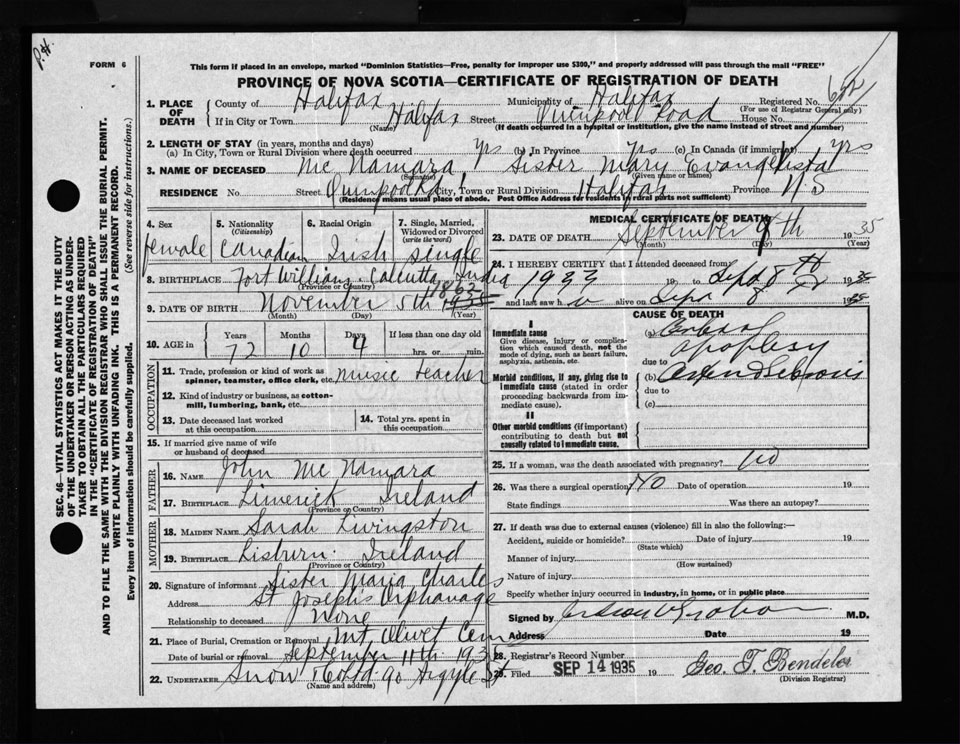 P.H.
FORM 6
This form if placed in an envelope, marked "Dominion Statistics—Free, penalty for improper use $300," and properly addressed will pass through the mail "FREE"
PROVINCE OF NOVA SCOTIA—CERTIFICATE OF REGISTRATION OF DEATH
SEC. 46—VITAL STATISTICS ACT MAKES IT THE DUTY
OF THE UNDERTAKER OR PERSON ACTING AS UNDER-
TAKER TO OBTAIN ALL THE PARTICULARS REQUIRED
IN THE "CERTIFICATE OF REGISTRATION OF DEATH"
AND TO FILE THE SAME WITH THE DIVISION REGISTRAR WHO SHALL ISSUE THE BURIAL PERMIT.
WRITE PLAINLY WITH UNFADING INK. THIS IS A PERMANENT RECORD.
Every item of information should be carefully supplied. (See reverse side for instructions.)
1. PLACE OF DEATH
County of Halifax Municipality of Halifax Registered No.
(For use of Registrar General only)
If in City or Town Halifax Street Quinpool Road House No.
(Name) (If death occurred in a hospital or institution, give the name instead of street and number)
2. LENGTH OF STAY (in years, months and days)
(a) In City, Town or Rural Division where death occurred yrs (b) In Province yrs (c) In Canada (if immigrant) yrs
3. NAME OF DECEASED Mc Namara Sister Mary Evangelista
(Surname) (Given name or names)
RESIDENCE No. Street Quinpool Rd City, Town or Rural Division Halifax Province N.S
(Residence means usual place of abode. Post Office Address for residents in rural parts not sufficient)
4. Sex 5. Nationality (Citizenship) 6. Racial Origin 7. Single, Married, Widowed or Divorced (write the word)
female Canadian Irish single
8. BIRTHPLACE Fort William Calcutta India
(Province or Country)
9. DATE OF BIRTH November 5th 1862 1935
(Month) (Day) (Year)
10. AGE in Years Months Days If less than one day old
72 10 4 hrs. or min.
OCCUPATION
11. Trade, profession or kind of work as
spinner, teamster, office clerk, etc. music teacher
12. Kind of industry or business, as cotton-
mill, lumbering, bank, etc.
13. Date deceased last worked at this occupation
14. Total yrs. spent in this occupation
15. If married give name of wife
or husband of deceased
FATHER
16. NAME John Mc Namara
17. BIRTHPLACE Limerick Ireland
(Province or Country)
MOTHER
18. MAIDEN NAME Sarah Livingston
19. BIRTHPLACE Lisburn Ireland
(Province or Country)
20. Signature of informant Sister Maria Charles
Address St Joseph's Orphanage
Relationship to deceased None
21. Place of Burial, Cremation or Removal Mt. Olivet Cem
Date of burial or removal September 11th 193
22. UNDERTAKER Snow & Co Ltd 90 Argyle St
(Name and address)
MEDICAL CERTIFICATE OF DEATH
23. DATE OF DEATH September 9th 1935
(Month) (Day) (Year)
24. I HEREBY CERTIFY that I attended deceased from
1933 19 to Sept 8th 1935
and last saw h alive on Sept 8 1935
CAUSE OF DEATH
I
Immediate cause
Give disease, injury or complica-
tion which caused death, not the
mode of dying, such as heart failure,
asphyxia, asthenia, etc.
(a) Cerebral
apoplexy
due to
Morbid conditions, if any, giving rise to
immediate cause (stated in order
proceeding backwards from im-
mediate cause).
(b)
due to
(c)
II
Other morbid conditions (if important)
contributing to death but not
causally related to immediate cause.
25. If a woman, was the death associated with pregnancy? no
26. Was there a surgical operation? No Date of operation 19
State findings Was there an autopsy?
27. If death was due to external causes (violence) fill in also the following:—
Accident, suicide or homicide? Date of injury 19
(State which)
Manner of injury
(How sustained)
Nature of injury
Specify whether injury occurred in industry, in home, or in public place
Signed by M.D.
Address Date 19
28. Registrar's Record Number
29. Filed SEP 14 1935 19 Geo. T. Bendeler
(Division Registrar)